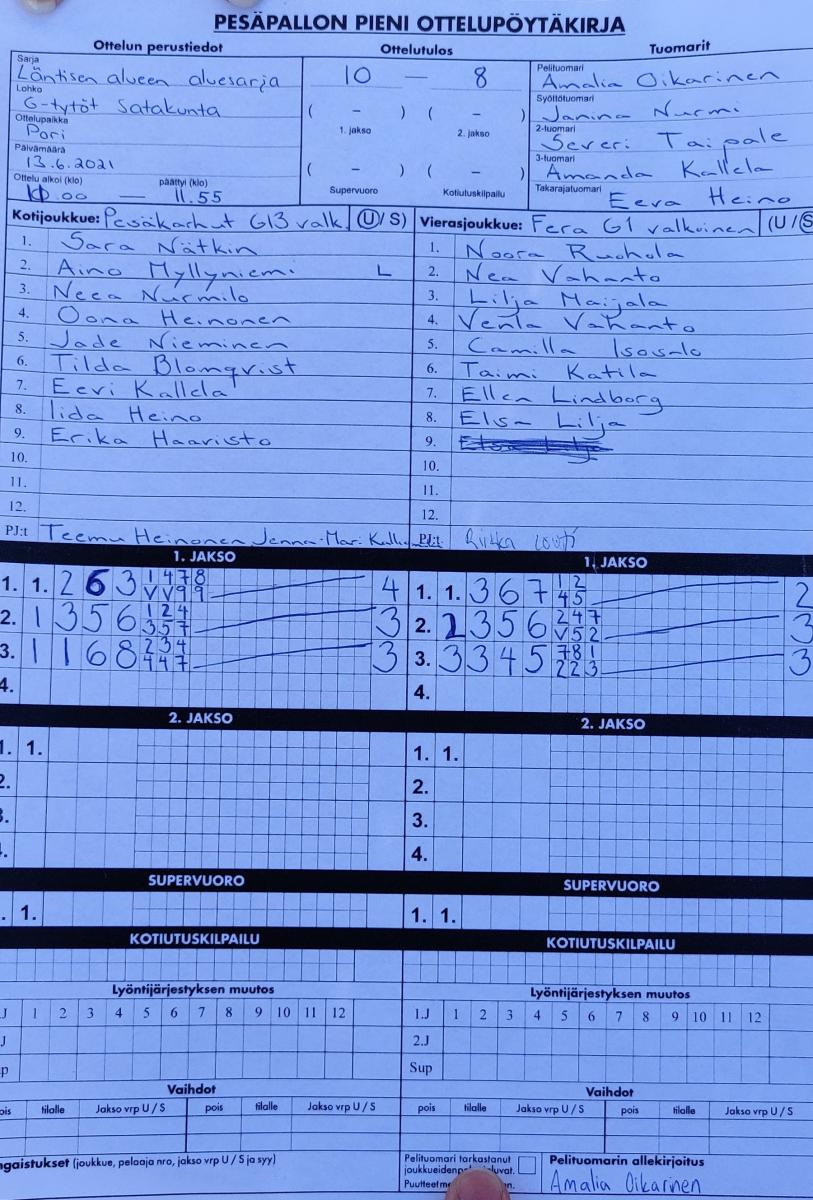 PESÄPALLON PIENI OTTELUPÖYTÄKIRJA
Ottelun perustiedot
Ottelutulos
Tuomarit
Sarja
Läntisen alueen aluesarja
Lohko
G-tytöt Satakunta
Ottelupaikka
Pori
Päivämäärä
13.6.2021
Ottelu alkoi (klo)
päättyi (klo)
10.00 — 11.55
10 — 8
( - ) ( - )
1. jakso
2. jakso
( - ) ( - )
Supervuoro
Kotiutuskilpailu
Pelituomari
Amalia Oikarinen
Syöttötuomari
Janina Nurmi
2-tuomari
Severi Taipale
3-tuomari
Amanda Kallela
Takarajatuomari
Eeva Heino
Kotijoukkue: Pesäkarhut G13 valk (U/S)
1. Sara Nätkin
2. Aino Myllyniemi L
3. Neea Nurmilo
4. Oona Heinonen
5. Jade Nieminen
6. Tilda Blomqvist
7. Eevi Kallela
8. Iida Heino
9. Erika Haaristo
10.
11.
12.
PJ:t Teemu Heinonen Jenna-Mari
Vierasjoukkue: Fera G1 valkoinen (U/S
1. Noora Ruohola
2. Nea Vahanto
3. Lilja Maijala
4. Venla Vahanto
5. Camilla Isosalo
6. Taimi Katila
7. Ellen Lindborg
8. Elsa Lilja
9.
10.
11.
12.
PJ:t
1. JAKSO
1. 1. 2 6 3 1 4 7 8 4
V V 9 9
2. 1 3 5 6 1 2 4 3
3 5 7
3. 1 1 6 8 2 3 4 3
4 4 7
4.
1. JAKSO
1. 1. 3 6 7 1 2 2
4 5
2. 2 3 5 6 2 4 7 3
V 5 2
3. 3 3 4 5 7 8 1 3
2 2 3
4.
2. JAKSO
1. 1.
2.
3.
.
2. JAKSO
1. 1.
2.
3.
4.
SUPERVUORO
. 1.
SUPERVUORO
1. 1.
KOTIUTUSKILPAILU
KOTIUTUSKILPAILU
Lyöntijärjestyksen muutos
J 1 2 3 4 5 6 7 8 9 10 11 12
J
p
Lyöntijärjestyksen muutos
1.J 1 2 3 4 5 6 7 8 9 10 11 12
2.J
Sup
Vaihdot
ois tilalle Jakso vrp U / S pois tilalle Jakso vrp U / S
Vaihdot
pois tilalle Jakso vrp U / S pois tilalle Jakso vrp U / S
ngaistukset (joukkue, pelaaja nro, jakso vrp U / S ja syy)
Pelituomari tarkastanut
Pelituomarin allekirjoitus
Amalia Oikarinen